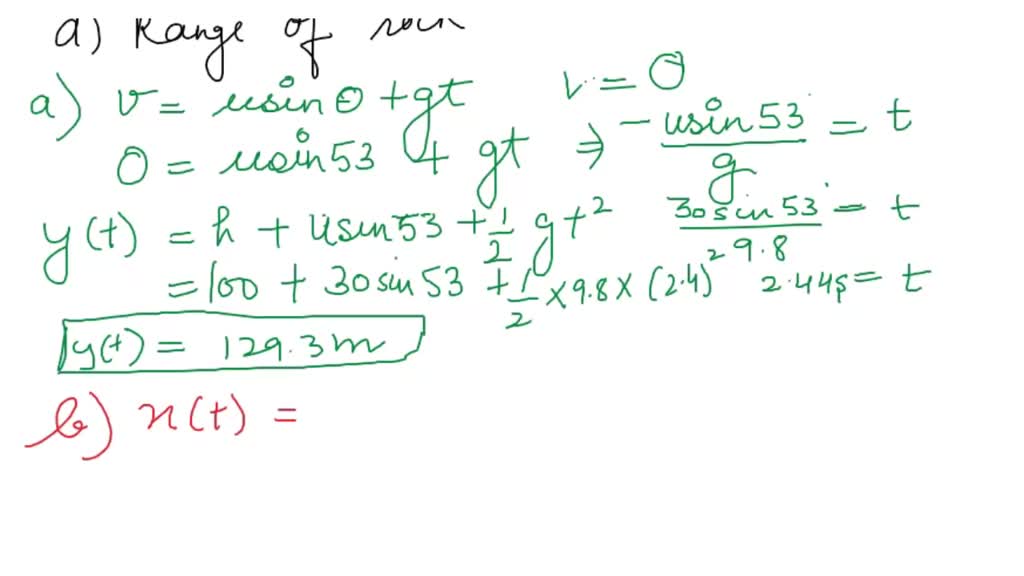 a) Range of
a) v = usinθ + gt v = 0
0 = usin53 + gt ⇒ -usin53/g = t
y(t) = h + usin53 + 1/2 gt² 30sin53/9.8 = t
= 100 + 30sin53 + 1/2 × 9.8 × (2.4)² 2.44s = t
y(t) = 129.3m
b) x(t) =